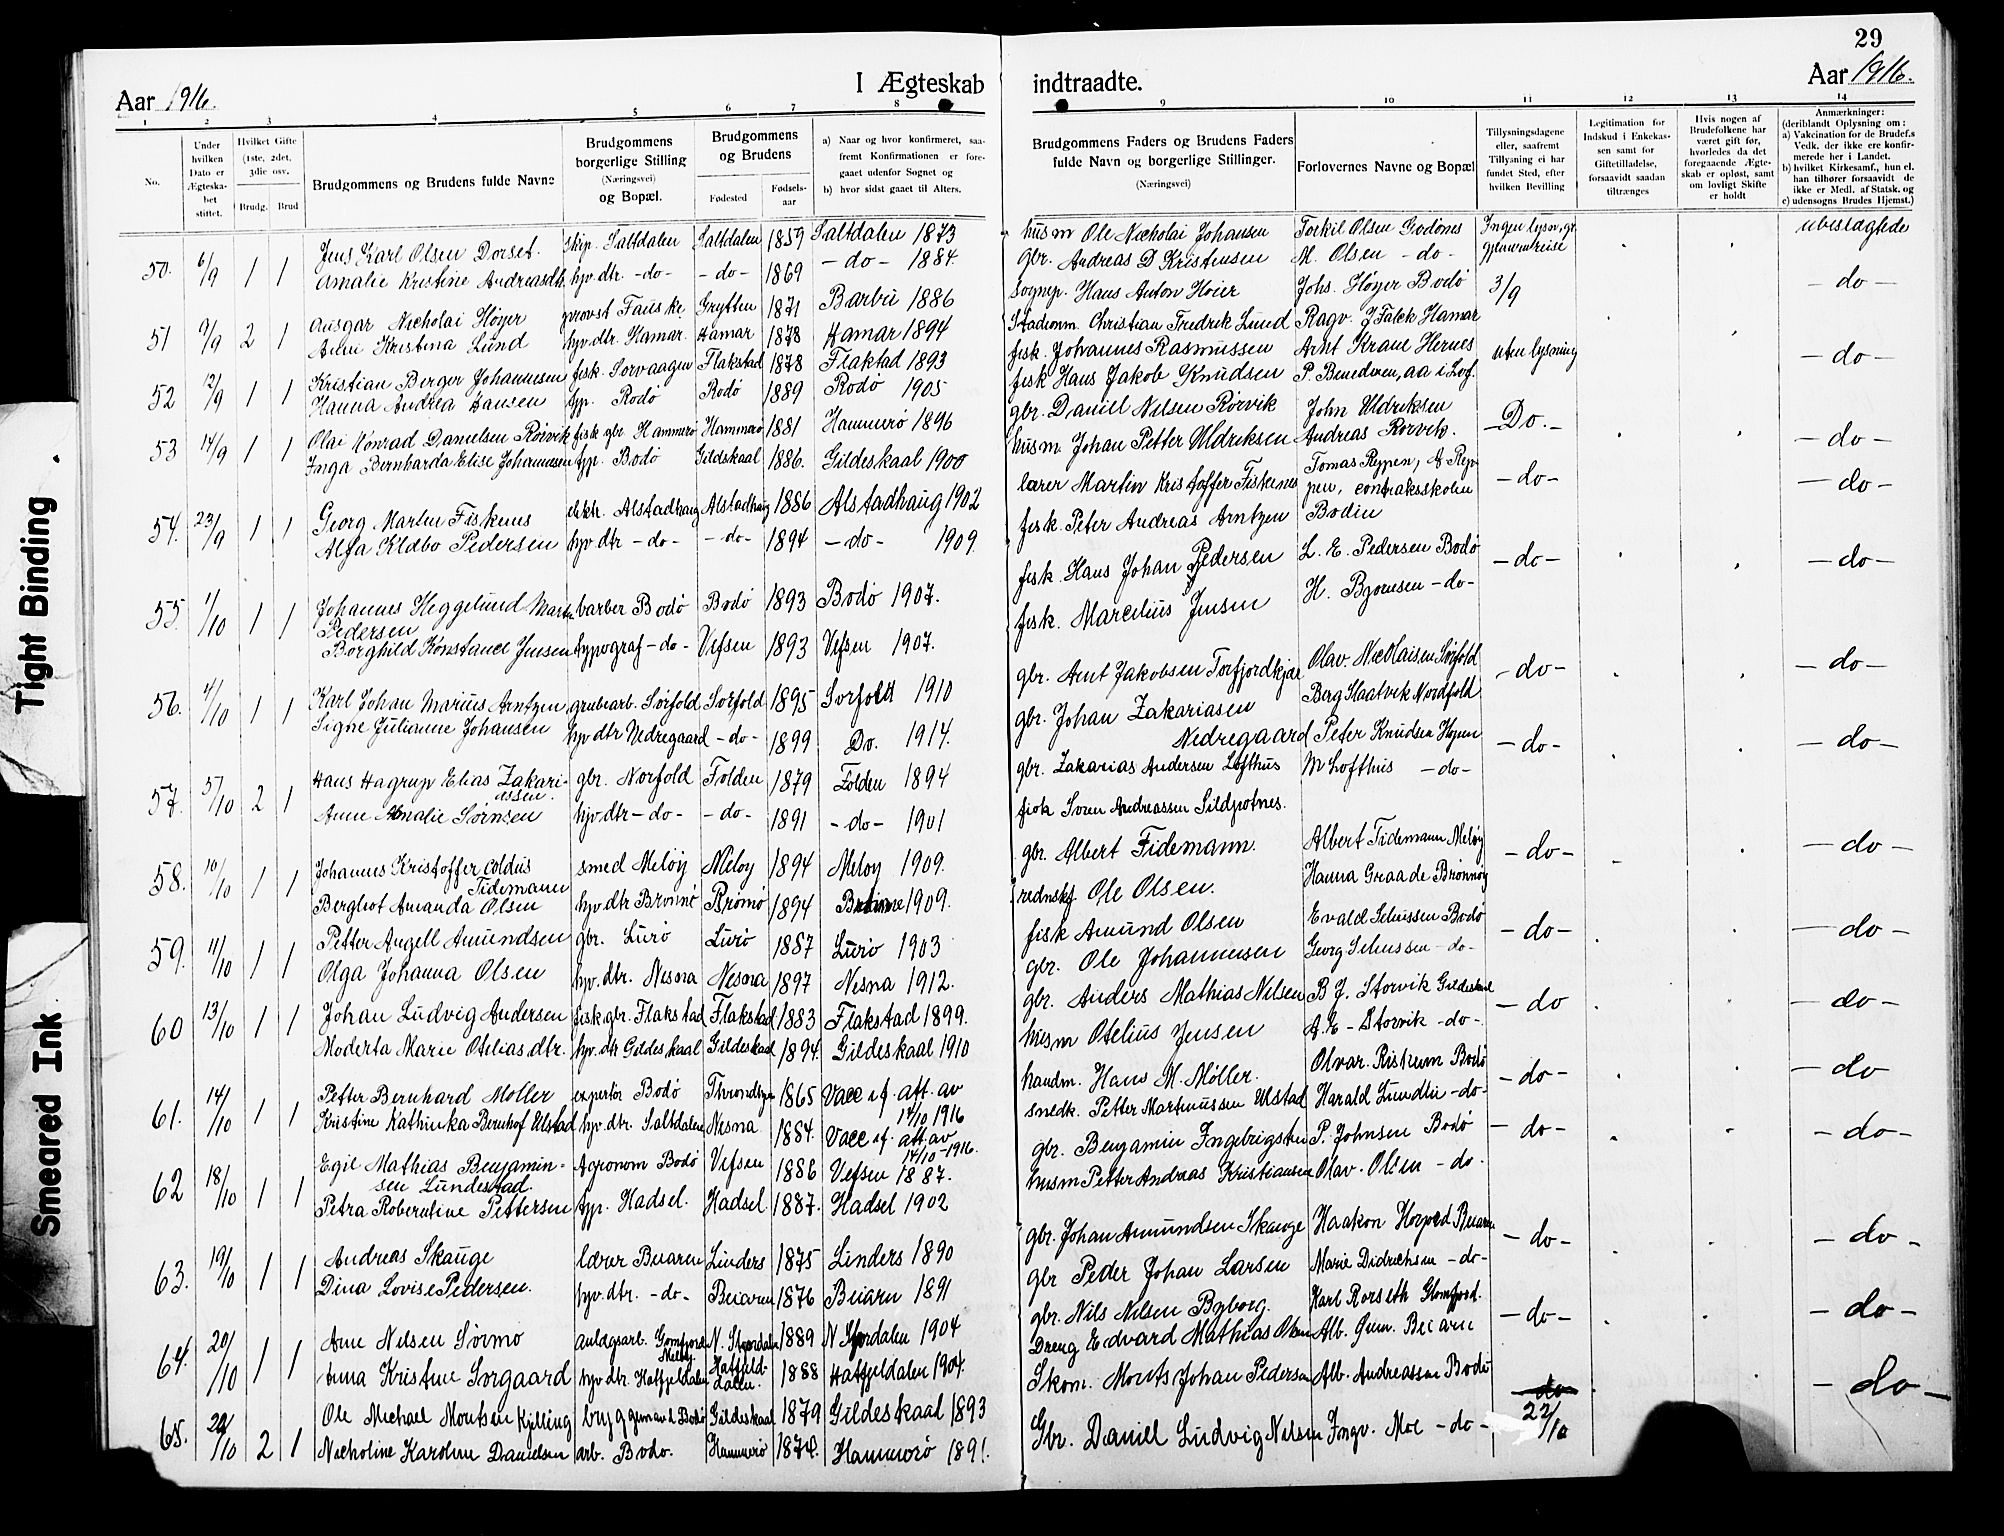 29
Aar 1916.
I Ægteskab indtraadte.
Aar 1916.
1 2 3 4 5 6 7 8 9 10 11 12 13 14
No.
Under hvilken Dato er Ægteskabet stiftet.
Hvilket Gifte (1ste, 2det, 3die osv.
Brudg. Brud
Brudgommens og Brudens fulde Navne
Brudgommens borgerlige Stilling (Næringsvei) og Bopæl.
Brudgommens og Brudens
Fødested Fødselsaar
a) Naar og hvor konfirmeret, saafremt Konfirmationen er foregaaet udenfor Sognet og
b) hvor sidst gaaet til Alters.
Brudgommens Faders og Brudens Faders fulde Navn og borgerlige Stillinger.
(Næringsvei)
Forlovernes Navne og Bopæl
Tillysningsdagene eller, saafremt Tillysning ei har fundet Sted, efter hvilken Bevilling
Legitimation for Indskud i Enkekassen samt for Giftetilladelse, forsaavidt saadan tiltrænges
Hvis nogen af Brudefolkene har været gift før, hvorledes da det foregaaende Ægteskab er opløst, samt om lovligt Skifte er holdt
Anmærkninger: (deriblandt Oplysning om: a) Vakcination for de Brudef.s Vedk. der ikke ere konfirmerede her i Landet. b) hvilket Kirkesamf., hun el. han tilhører forsaavidt de ikke er Medl. af Statsk. og c) udensogns Brudes Hjemst.)
50. 6/9 1 1 Jens Karl Olsen Dorset. skip. Saltdalen Saltdalen 1859 Saltdalen 1873 husm Ole Nicholai Johansen Torkil Olsen Godønes Ingen lysn. gr. ubeslægtede
Amalie Kristine Andreasdtr. hjv.dtr. -do- -do- 1869 -do- 1884. gbr. Andreas D Kristensen M. Olsen -do-
51 9/9 2 1 Ansgar Nicholai Høyer provst Fauske Grytten 1871 Barbu 1886 sognep. Hans Anton Høier Johs. Høyer Bodø 3/9 -do-
Anne Kristina Lund hjv.dtr. Hamar. Hamar 1878 Hamar 1894 Christian Fredrik Lund Ragv. J Falck Hamar
52 12/9 1 1 Kristian Berger Johannesen fisk. Sorvaagen Flakstad 1878 Flaktad 1893 fisk. Johannes Rasmussen Arnt Krane Hernes uten lysning -do-
Hanna Andrea Hansen tjp. Rodø Rodø 1889 Rodø 1905 fisk Hans Jakob Knudsen
53 14/9 1 1 Olai Konrad Danielsen Rørvik fisk gbr Hammerø Hammerø 1881 Hammerø 1896 gbr. Daniel Nilsen Rørvik John Uldriksen -Do.- -do-
Inga Bernharda Elise Johannesen tjp. Bodø Gildskaal 1886. Gildeskaal 1900 husm. Johan Petter Uldriksen Andreas Rørvik.
54. 23/9 1 1 Georg Martin Fiskenes elektr. Alstadhaug Alstadhaug 1886 Alstadhaug 1902 lærer Martin Kristoffer Fiskenes -do- -do-
Alfa Kldbo Pedersen hjv dtr -do- -do- 1894 -do- 1909. fisk. Peter Andreas Arntzen Bodin
55. 1/10 1 1 Johannes Heggelund Martin Pedersen barber Bodø Bodø 1893 Bodø 1907. fisk. Hans Johan Pedersen L. E. Pedersen Bodø -do- -do-
Borghild Konstance Jensen typograf -do- Vefsen 1893 Vefsen 1907. fisk. Marcelius Jensen -do-
56. 4/10 1 1 Karl Johan Marius Arntzen grubearb. Sørfold Sørfold 1895 Sorfold 1910 gbr. Arnt Jakobsen Torfjordkjær Olav. Nicolaisen Sørfold -do- -do-
Signe Julianne Johansen hjv dtr Nedregaard -do- 1899 Do. 1914. gbr. Johan Zakariasen Nedregaard Berg Slaatvik Nordfold
57. 5/10 2 1 Hans Hagrup Elias Zakariassen. gbr. Norfold Folden 1879 Folden 1894 gbr. Zakarias Andersen Lofthus -do- -do-
Anne Amalie Sørnsen hjv.dtr -do- -do- 1891 -do- 1901 M Lofthus -do-
58. 10/10 1 1 Johannes Kristoffer Coldus Tidemann smed Meløy Meloy 1894 Meloy 1909. gbr. Albert Tidemann. Albert Tidemann Meløy -do- -do-
Bergliot Amanda Olsen hjv dtr Brønnø 1894 1909. Ole Olsen. Hanna Graade Brønnøy
59. 11/10 1 1 Petter Angell Amundsen gbr. Lurø Lurø 1887 Lurø 1903 fisk Amund Olsen -do- -do-
Olga Johanna Olsen hjv. dtr. Nesna Nesna 1897 Nesna 1912. gbr. Ole Johannesen -do-
60 13/10 1 1 Johan Ludvig Andersen fisk. gbr. Flakstad Flakstad 1883 Flakstad 1899. gbr. Anders Mathias Nilsen B J. Storvik Gildeskaal -do -do-
Moderta Marie Oteliasdtr. hjv. dtr Gildeskaal Gildeskaal 1894. Gildeskaal 1910 husm Otelius Jensen A. E - Storvik -do-
61. 14/10 1 1 Petter Bernhard Moller expeditør Bodø 1865 Vacc if. att. av 14/10 1916 handm. Hans M. Møller. -do- -do
Kristine Kathinka Bernhof Ulstad hjv. dtr. Saltdalen Nesna 1884. Vacc if. att. av 14/10-1916. snedk. Petter Martinussen Ulstad Harald Lundli -do-
62 18/10 1 1 Egil Mathias Benjaminsen Lundestad. Agronom Bodø Vefsen 1886 Vefsen 1887. gbr. Benjamin Ingebrigtsen P. Johnsen Bodø -do- -do-
Petra Robertine Pettersen tjp. Hadsel. Hadsel 1887. Hadsel 1902 husm Petter Andreas Kristiansen Olav. Olsen -do-
63. 19/10 1 1 Andreas Skauge lærer Beiaren Linders 1875 Linders 1890 gbr. Johan Amundsen Skauge -do- -do-
Dina Lovise Pedersen. hjv. dtr. -do- Beiaren 1876 Beiarn 1891 gbr Peder Johan Larsen Marie Didrichsen -do-
64. 20/10 1 1 Arne Nilsen Sørmo anlægsarb. Glomfjord Meløy N. Stjordalen 1889 N Stjordalen 1904 gbr. Nils Nilsen Byborg. Karl Rorseth Glomfjord. -do- -do-
Anna Kristine Sorgaard hjv dtr. Hatfjeldalen Hatfjelddalen. 1888 Hatfjeldalen 1904. Edvard Mathias Olsen Alb. Beiarn
65. 24/10 2 1 Ole Michael Mortsen Kjelling byggmand Bodø Gildeskaal 1879 Gildeskaal 1893 Skom. Morits Johan Pedersen Alb. Andreassen Bodø 22/10 -do-
Nicholine Karoline Danielsen arb. Bodo. Hammerø 1874. Hammerø 1891. Gbr. Daniel Ludvig Nelsen Ingv. Moe -do-
Tight Binding
Smeared Ink